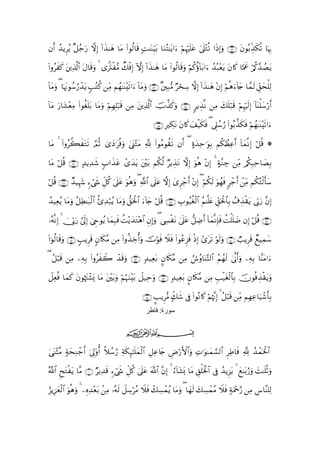 بِهَا تُكَذِّبُونَ ۝ وَإِذَا تُتْلَىٰ عَلَيْهِمْ ءَايَٰتُنَا بَيِّنَٰتٍ قَالُوا۟ مَا هَٰذَآ إِلَّا رَجُلٌ يُرِيدُ أَن
يَصُدَّكُمْ عَمَّا كَانَ يَعْبُدُ ءَابَآؤُكُمْ وَقَالُوا۟ مَا هَٰذَآ إِلَّآ إِفْكٌ مُّفْتَرًى ۚ وَقَالَ ٱلَّذِينَ كَفَرُوا۟
لِلْحَقِّ لَمَّا جَآءَهُمْ إِنْ هَٰذَآ إِلَّا سِحْرٌ مُّبِينٌ ۝ وَمَآ ءَاتَيْنَٰهُم مِّن كُتُبٍ يَدْرُسُونَهَا ۖ وَمَآ
أَرْسَلْنَآ إِلَيْهِمْ قَبْلَكَ مِن نَّذِيرٍ ۝ وَكَذَّبَ ٱلَّذِينَ مِن قَبْلِهِمْ وَمَا بَلَغُوا۟ مِعْشَارَ مَآ
ءَاتَيْنَٰهُمْ فَكَذَّبُوا۟ رُسُلِى ۖ فَكَيْفَ كَانَ نَكِيرِ ۝
۞ قُلْ إِنَّمَآ أَعِظُكُم بِوَٰحِدَةٍ ۖ أَن تَقُومُوا۟ لِلَّهِ مَثْنَىٰ وَفُرَٰدَىٰ ثُمَّ تَتَفَكَّرُوا۟ ۚ مَا
بِصَاحِبِكُم مِّن جِنَّةٍ ۚ إِنْ هُوَ إِلَّا نَذِيرٌ لَّكُم بَيْنَ يَدَىْ عَذَابٍ شَدِيدٍ ۝ قُلْ مَا
سَأَلْتُكُم مِّنْ أَجْرٍ فَهُوَ لَكُمْ ۖ إِنْ أَجْرِىَ إِلَّا عَلَى ٱللَّهِ ۖ وَهُوَ عَلَىٰ كُلِّ شَىْءٍ شَهِيدٌ ۝ قُلْ
إِنَّ رَبِّى يَقْذِفُ بِٱلْحَقِّ عَلَّٰمُ ٱلْغُيُوبِ ۝ قُلْ جَآءَ ٱلْحَقُّ وَمَا يُبْدِئُ ٱلْبَٰطِلُ وَمَا يُعِيدُ
۝ قُلْ إِن ضَلَلْتُ فَإِنَّمَآ أَضِلُّ عَلَىٰ نَفْسِى ۖ وَإِنِ ٱهْتَدَيْتُ فَبِمَا يُوحِىٓ إِلَىَّ رَبِّىٓ ۚ إِنَّهُۥ
سَمِيعٌ قَرِيبٌ ۝ وَلَوْ تَرَىٰٓ إِذْ فَزِعُوا۟ فَلَا فَوْتَ وَأُخِذُوا۟ مِن مَّكَانٍ قَرِيبٍ ۝ وَقَالُوٓا۟
ءَامَنَّا بِهِۦ وَأَنَّىٰ لَهُمُ ٱلتَّنَاوُشُ مِن مَّكَانٍۭ بَعِيدٍ ۝ وَقَدْ كَفَرُوا۟ بِهِۦ مِن قَبْلُ ۖ
وَيَقْذِفُونَ بِٱلْغَيْبِ مِن مَّكَانٍۭ بَعِيدٍ ۝ وَحِيلَ بَيْنَهُمْ وَبَيْنَ مَا يَشْتَهُونَ كَمَا فُعِلَ
بِأَشْيَاعِهِم مِّن قَبْلُ ۚ إِنَّهُمْ كَانُوا۟ فِى شَكٍّ مُّرِيبٍۭ ۝
سورة: فاطر
بِسْمِ ٱللَّهِ ٱلرَّحْمَٰنِ ٱلرَّحِيمِ
ٱلْحَمْدُ لِلَّهِ فَاطِرِ ٱلسَّمَٰوَٰتِ وَٱلْأَرْضِ جَاعِلِ ٱلْمَلَٰٓئِكَةِ رُسُلًا أُو۟لِىٓ أَجْنِحَةٍ مَّثْنَىٰ
وَثُلَٰثَ وَرُبَٰعَ ۚ يَزِيدُ فِى ٱلْخَلْقِ مَا يَشَآءُ ۚ إِنَّ ٱللَّهَ عَلَىٰ كُلِّ شَىْءٍ قَدِيرٌ ۝ مَّا يَفْتَحِ ٱللَّهُ
لِلنَّاسِ مِن رَّحْمَةٍ فَلَا مُمْسِكَ لَهَا ۖ وَمَا يُمْسِكْ فَلَا مُرْسِلَ لَهُۥ مِنۢ بَعْدِهِۦ ۚ وَهُوَ ٱلْعَزِيزُ